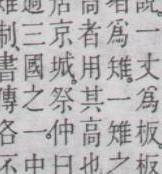 説一丈爲板。板
者爲雉。一雉之
高者用其高也
居京城。祭仲曰
過三國之一。中
制。書傳各不